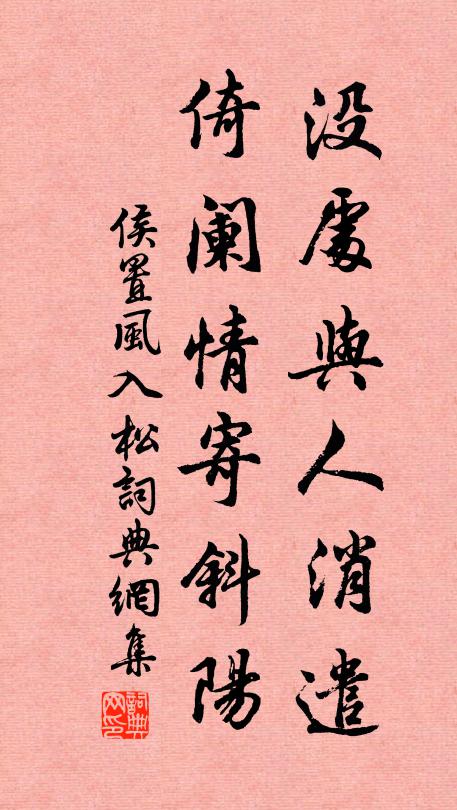 没處與人消遣
倚闌情寄斜陽
侯置風入松詞典網集
詞典網印